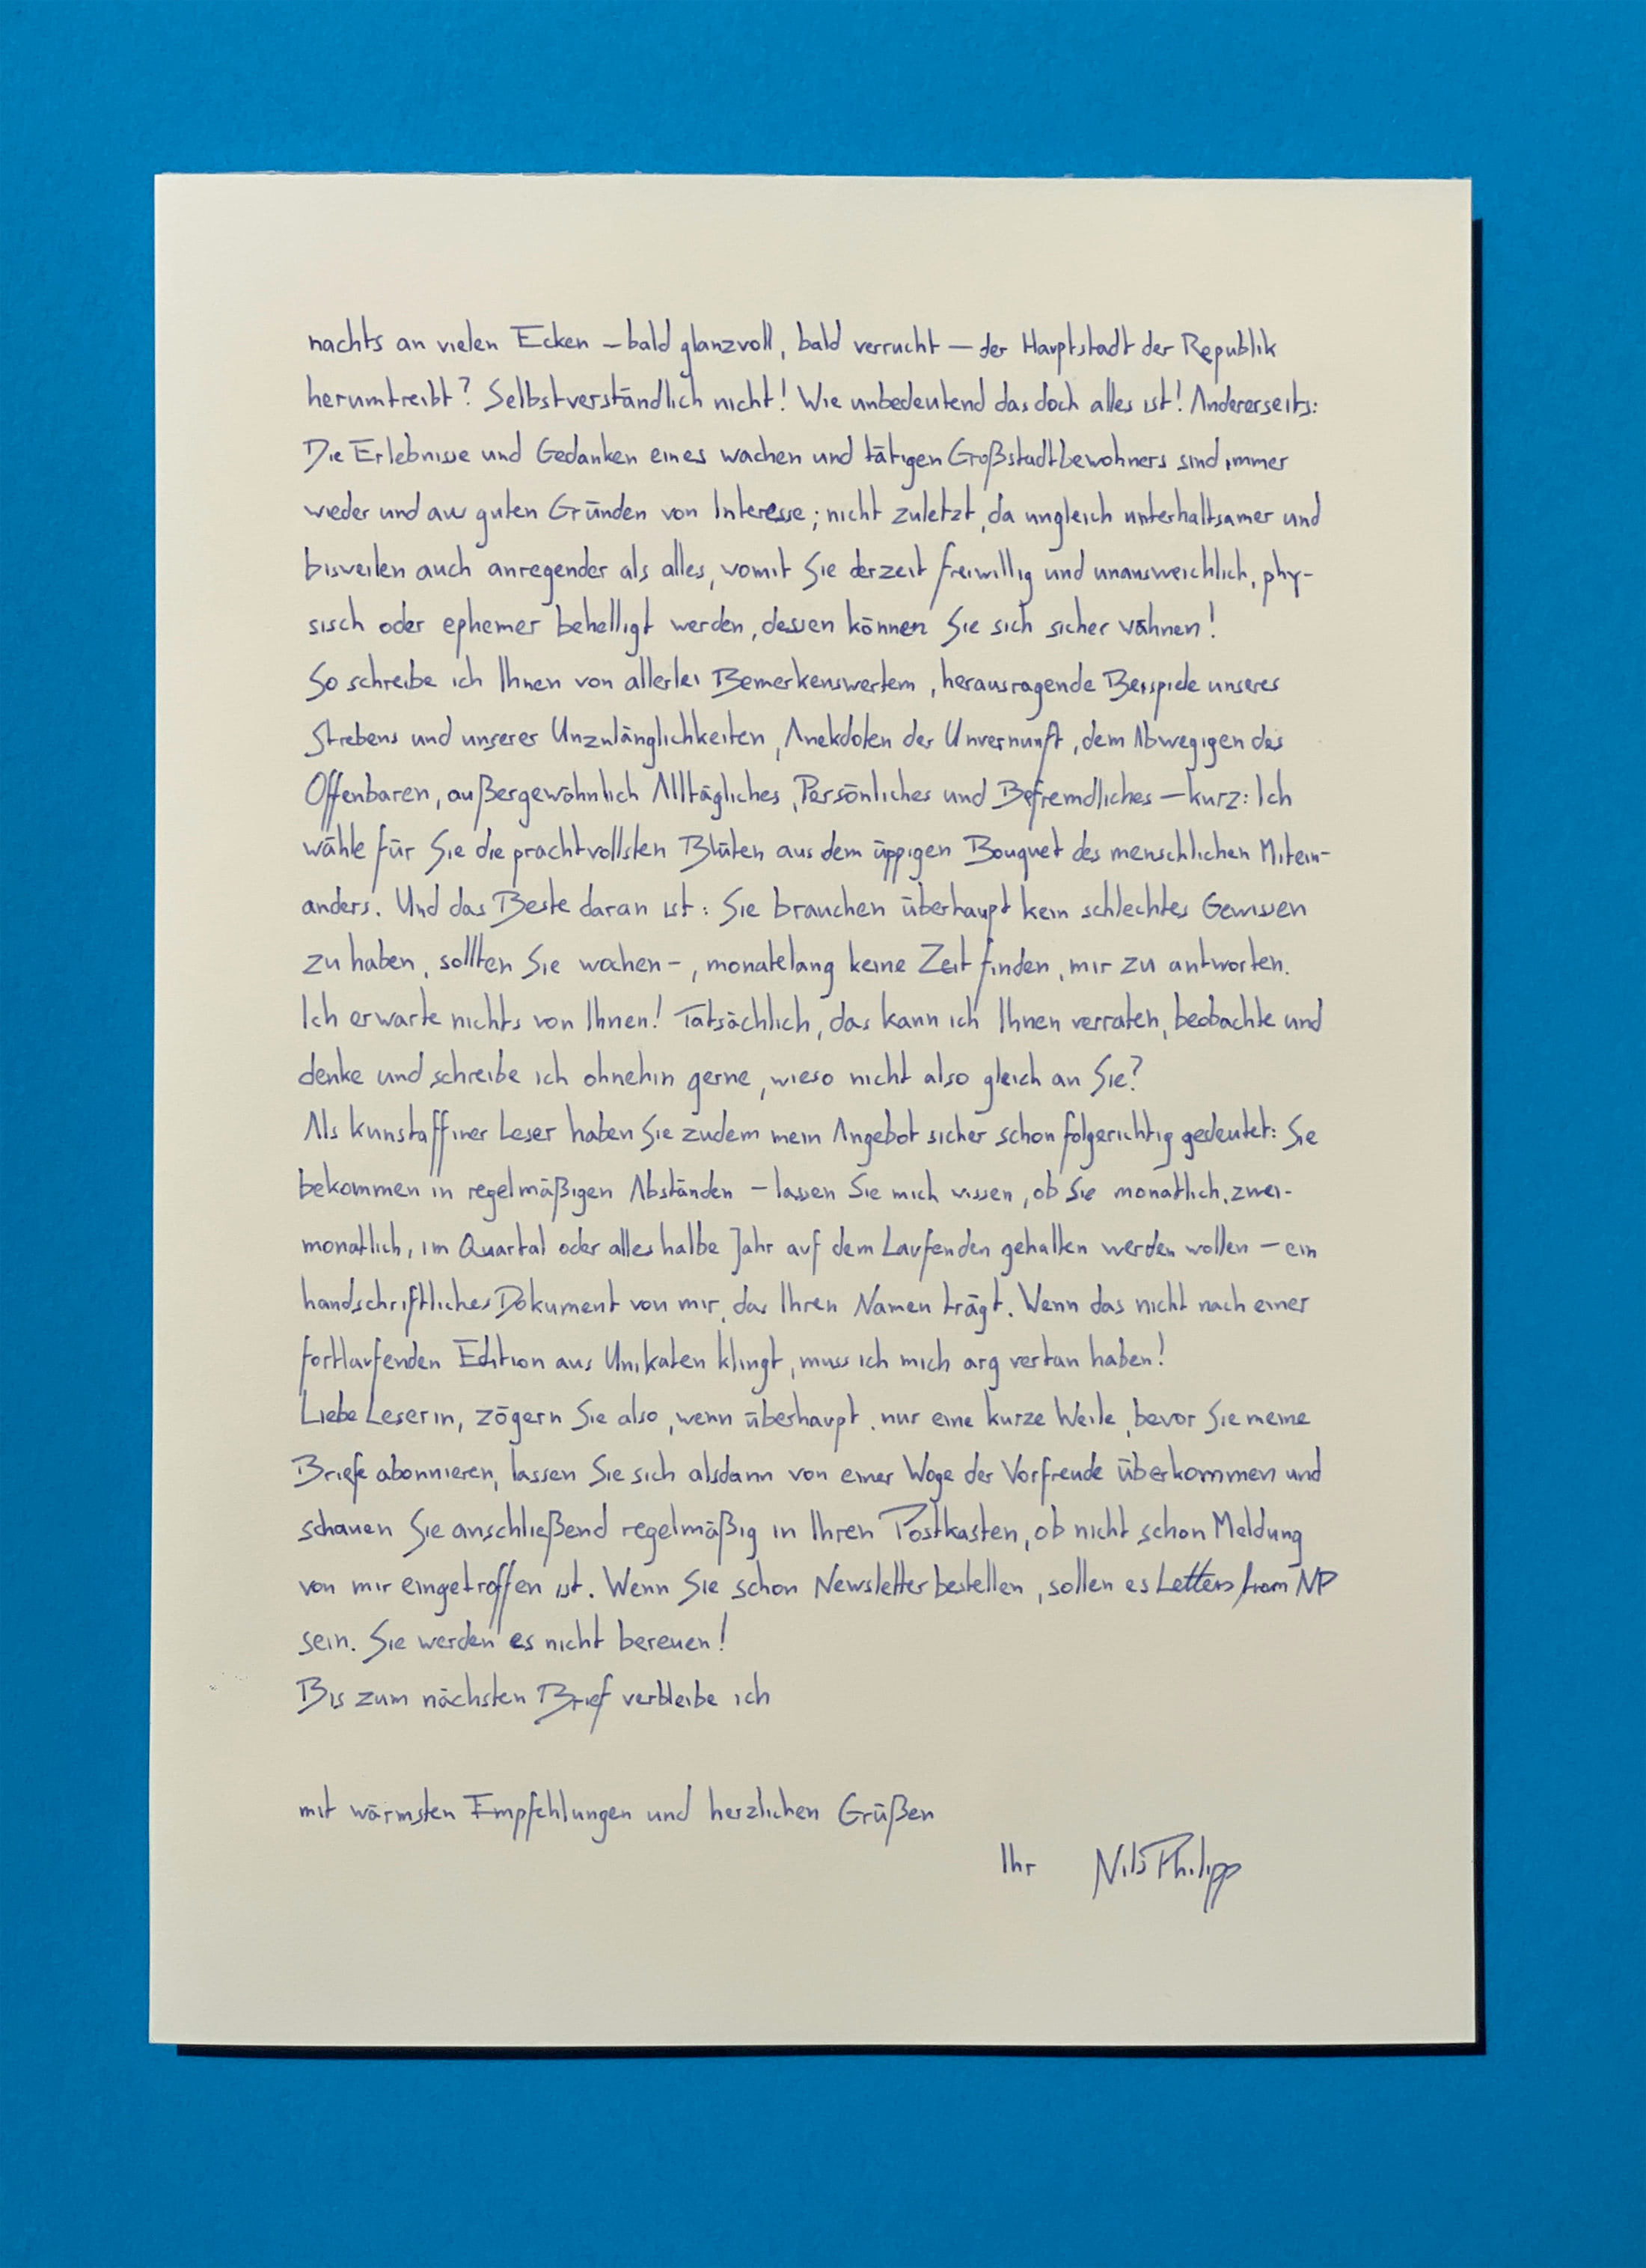 nachts an vielen Ecken – bald glanzvoll, bald verrucht – der Hauptstadt der Republik
herumtreibt? Selbstverständlich nicht! Wie unbedeutend das doch alles ist! Andererseits:
Die Erlebnisse und Gedanken eines wachen und tätigen Großstadtbewohners sind immer
wieder und aus guten Gründen von Interesse; nicht zuletzt, da ungleich unterhaltsamer und
bisweilen auch anregender als alles, womit Sie derzeit freiwillig und unausweichlich, phy-
sisch oder ephemer behelligt werden, dessen können Sie sich sicher wähnen!
So schreibe ich Ihnen von allerlei Bemerkenswertem, herausragende Beispiele unseres
Strebens und unserer Unzulänglichkeiten, Anekdoten der Unvernunft, dem Abwegigen des
Offenbaren, außergewöhnlich Alltägliches, Persönliches und Befremdliches – kurz: Ich
wähle für Sie die prachtvollsten Blüten aus dem üppigen Bouquet des menschlichen Mitein-
anders. Und das Beste daran ist: Sie brauchen überhaupt kein schlechtes Gewissen
zu haben, sollten Sie wochen-, monatelang keine Zeit finden, mir zu antworten.
Ich erwarte nichts von Ihnen! Tatsächlich, das kann ich Ihnen verraten, beobachte und
denke und schreibe ich ohnehin gerne, wieso nicht also gleich an Sie?
Als kunstaffiner Leser haben Sie zudem mein Angebot sicher schon folgerichtig gedeutet: Sie
bekommen in regelmäßigen Abständen – lassen Sie mich wissen, ob Sie monatlich, zwei-
monatlich, im Quartal oder alles halbe Jahr auf dem Laufenden gehalten werden wollen – ein
handschriftliches Dokument von mir, das Ihren Namen trägt. Wenn das nicht nach einer
fortlaufenden Edition aus Unikaten klingt, muss ich mich arg vertan haben!
Liebe Leserin, zögern Sie also, wenn überhaupt, nur eine kurze Weile, bevor Sie meine
Briefe abonnieren, lassen Sie sich alsdann von einer Woge der Vorfreude überkommen und
schauen Sie anschließend regelmäßig in Ihren Postkasten, ob nicht schon Meldung
von mir eingetroffen ist. Wenn Sie schon Newsletter bestellen, sollen es Letters from NP
sein. Sie werden es nicht bereuen!
Bis zum nächsten Brief verbleibe ich
mit wärmsten Empfehlungen und herzlichen Grüßen
Ihr Nils Philipp